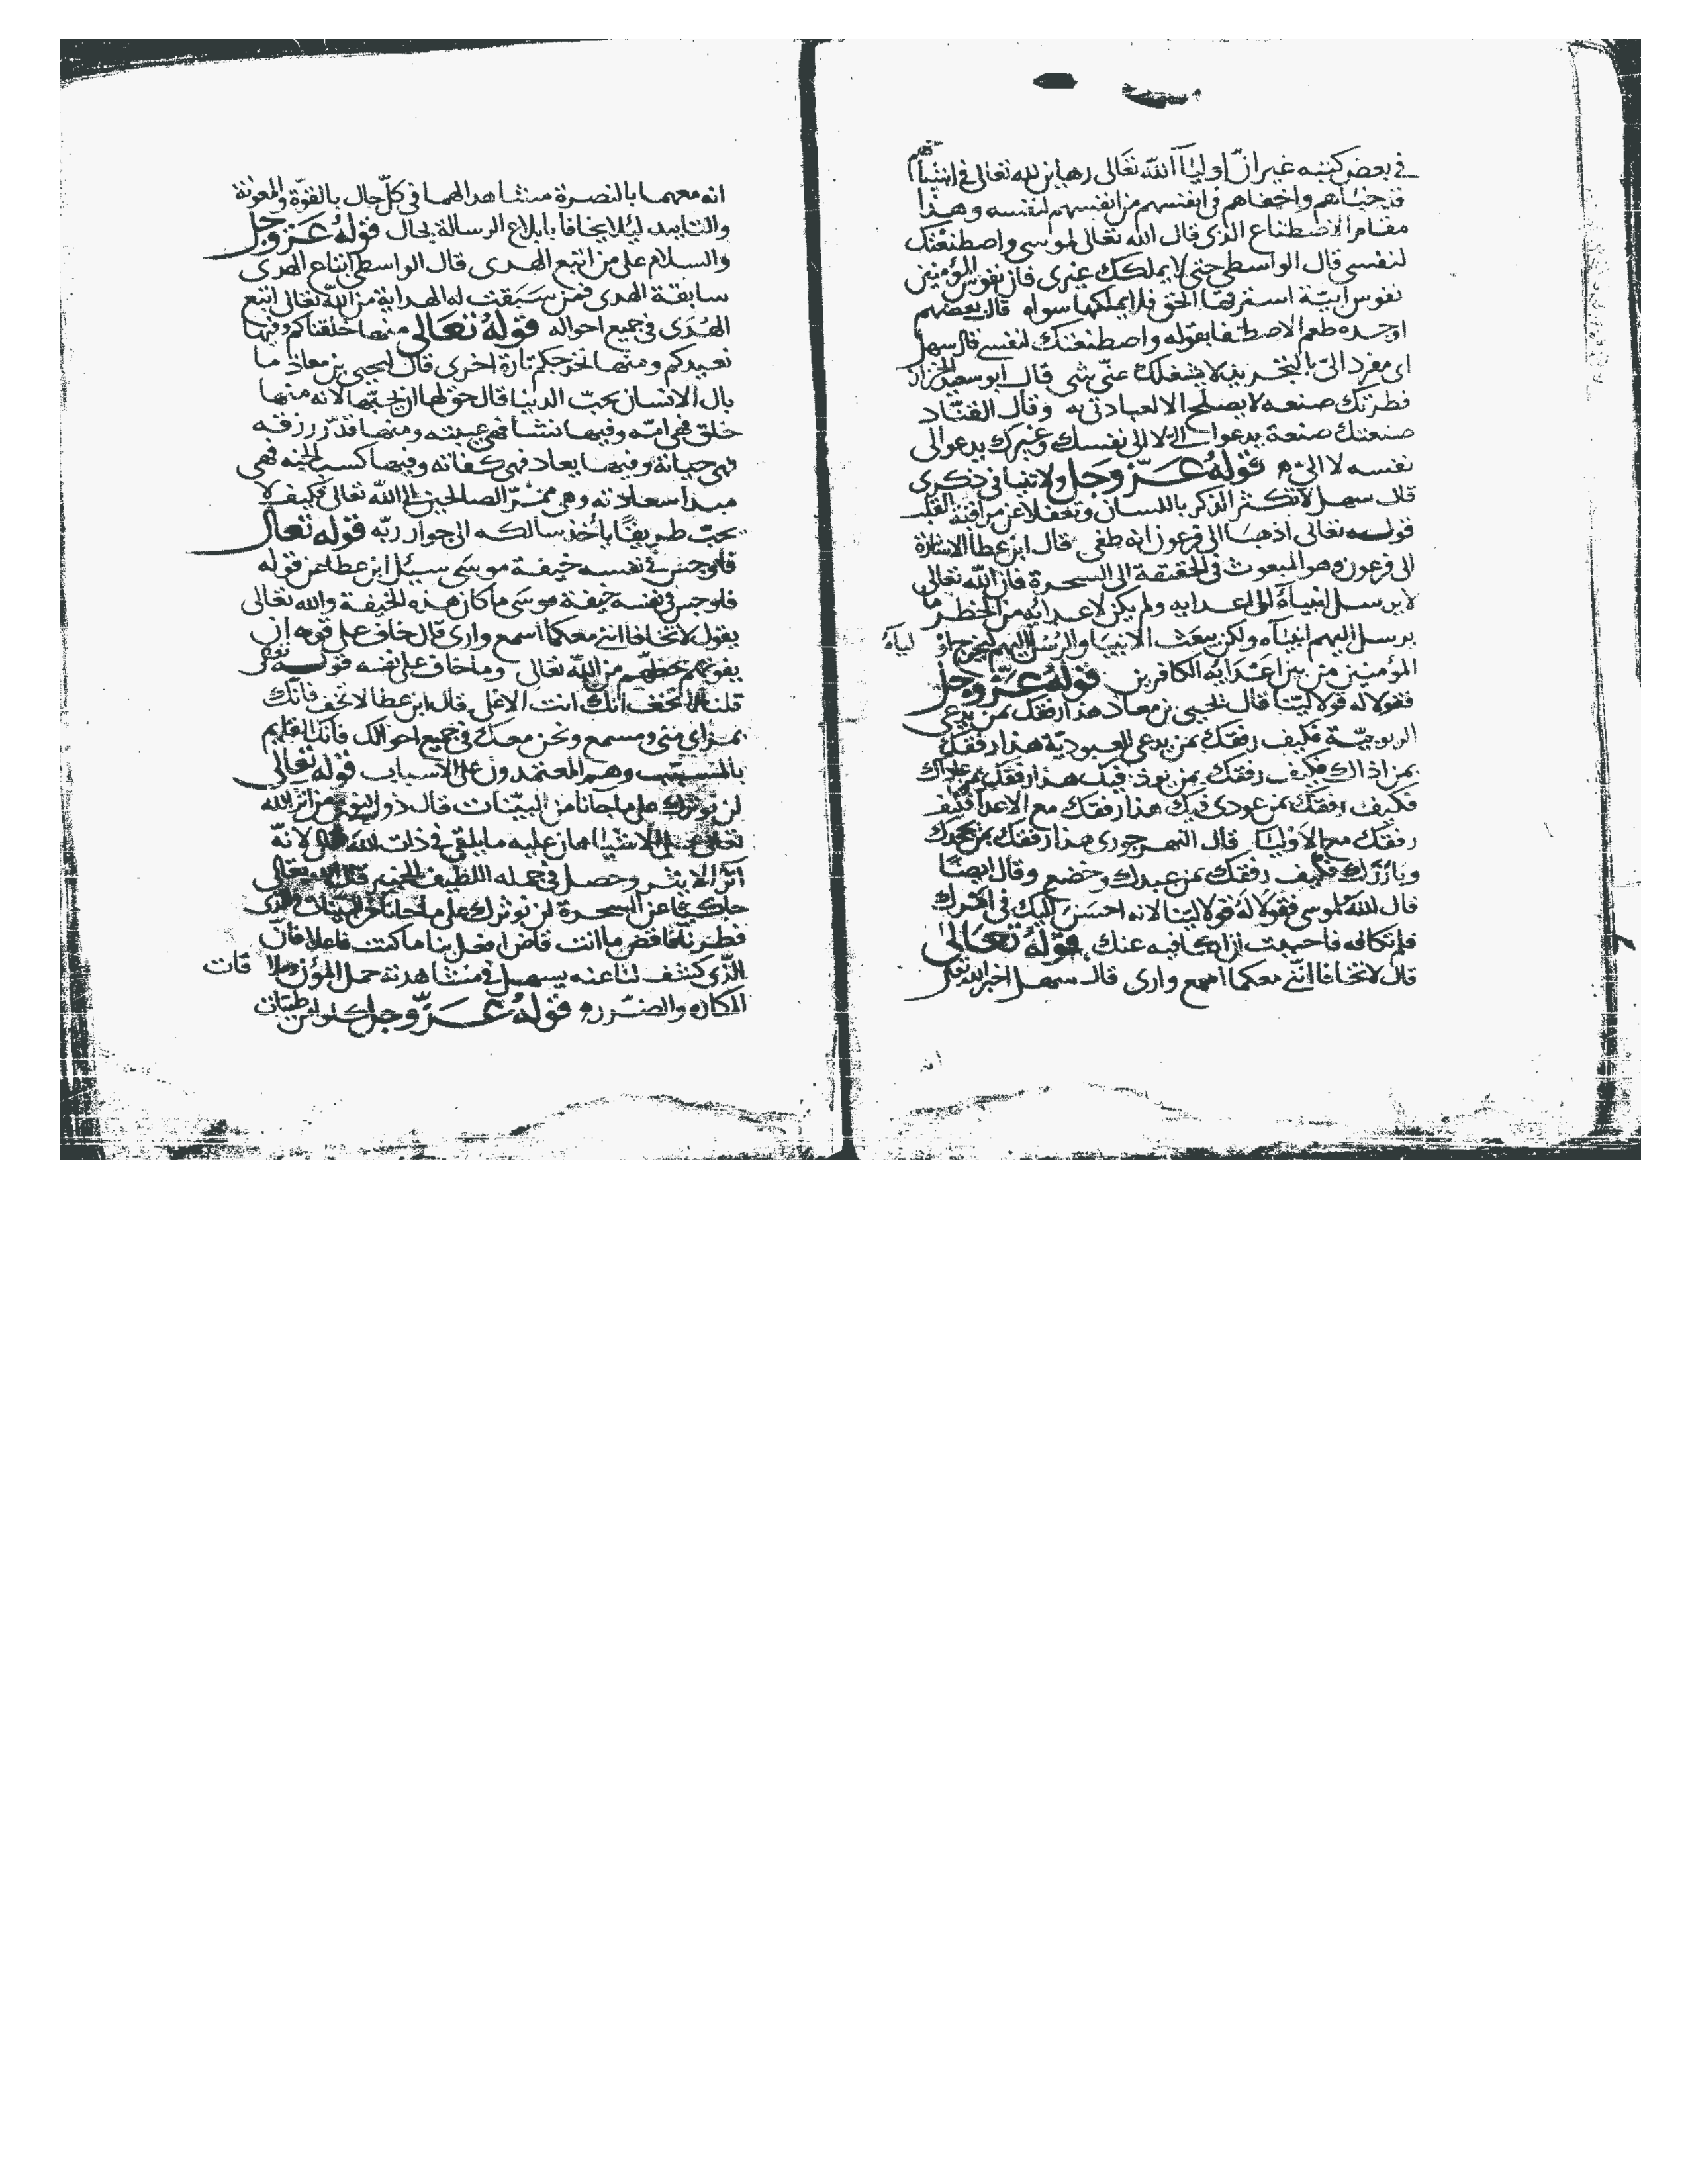 في بعض كتبه غير ان اوليآ الله تعالى رهاين لله تعالى في
قد خبأهم واخفاهم في انفسهم من انفسهم لنفسه وهذا
مقام الاصطناع الذى قال الله تعالى لموسى واصطنعتك
لنفسى قال الواسطي حتى لا يملكك غيرى فان نفوس المؤمنين
نفوس ابيّة استرقها الحق فلا يملكها سواه قال بعضهم
اوجده طعم الاصطفا بقوله واصطنعتك لنفسى قال سهل
اى مفرد الىّ بالتجريد لا يشغلك عنّى شى قال ابو سعيد الخراز
فطرتك صنعه لا يصلح الا لعبادتى وقال القنّاد
صنعتك صنعة يدعوا الىّ لا الى نفسك وغيرك يدعو الى
نفسه لا الىّ قوله عزّ وجل ولا تنيا فى ذكرى
قال سهل لا تكثر الذكر باللسان وتغفلا عن مراقبة القلب
قوله تعالى اذهبا الى فرعون انه طغى قال ابن عطا الاشارة
الى فرعون وهو المبعوث في الحقيقة الى السحرة فان الله تعالى
لا يرسل انبيآه الى اعدايه ولم يكن لاعدايه من الخطر ما
يرسل اليهم انبيآه ولكن يبعث الانبيا والرسل اليهم ليخرج اوليآه
المؤمنين من بين اعدايه الكافرين قوله عزّ وجل
فقولا له قولا ليّنا قال يحيى بن معاذ هذا رفقك بمن يدعى
الربوبيّة فكيف رفقك بمن يدعى العبوديّة هذا رفقك
بمن اذاك فكيف رفقك بمن يوذى فيك هذا رفقك بمن عاداك
فكيف رفقك بمن عودى فيك هذا رفقك مع الاعدا فكيف
رفقك مع الاوليا قال النهرجورى هذا رفقك بمن جحدك
وبارزك فكيف رفقك بمن عبدك وخضع وقال ايضا
قال لله لموسى فقولا له قولا ليّنا لانه احسن اليك فى
فلم تكافه فاحببت ان اكافيه عنك قوله تعالى
قال لا تخافا انّنى معكما اسمع وارى قال سهل اخبر الله تعالى
انه معهما بالنصرة مشاهدا لهما في كلّ حال بالقوّة والمعونة
والتاييد ليلا يخافا بابلاغ الرسالة بحال قوله عزّ وجل
والسلام على من اتبع الهدى قال الواسطى اتباع الهدى
سابقة الهدى فمن سبقت له الهداية من الله تعالى اتبع
الهدى في جميع احواله قوله تعالى منها خلقناكم وفيها
نعيدكم ومنها نخرجكم تارة اخرى قال يحيى بن معاذ ما
بال الانسان يحبّ الدنيا قال حق لها ان يحبّها لانه منها
خلق فهى امّه وفيها نشأ فهى عيشه ومنها قدّر رزقه
فهى حياته وفيها يعاد فهى كفاته وفيها كسب الجنه فهى
مبدا سعادته وهى ممرّ الصالحين الى الله تعالى فكيف لا
يحبّ طريقًا يأخذ سالكه الى جوار ربّه قوله تعالى
فاوجس في نفسه خيفة موسى سيل ابن عطا عن قوله
فاوجس في نفسه خيفة موسى ما كان هذه الخيفة والله تعالى
يقول لا تخافا انّنى معكما اسمع وارى قال خاف على قومه ان
يفوتهم حظهم من الله تعالى وما خاف على نفسه قوله تعالى
قلنا لا تخف انك انت الاعلى قال ابن عطا لا تخف فانّك
بمراى منى ومسمع ونحن معك في جميع احوالك فانك القايم
بالمسبّب وهم المعتمدون على الاسباب قوله تعالى
لن نوثرك على ما جانا من البيّنات قال ذو النون من اثر الله
تعالى على الاشيا هان عليه ما يلقى في ذات الله لانّه
آثر الاثر وحصل في جمله اللطيف الخبير قال الله تعالى
حاكيا عن السحرة لن نوثرك على ما جانا من البينات والذى
فطرنا فاقض ما انت قاض افعل بنا ما كنت فاعلا فانّ
الذّى كشف لنا عنه يسهل في مشاهدته حمل المؤن وملاقات
المكاره والضرر قوله عزّ وجل كلوا من طيبات